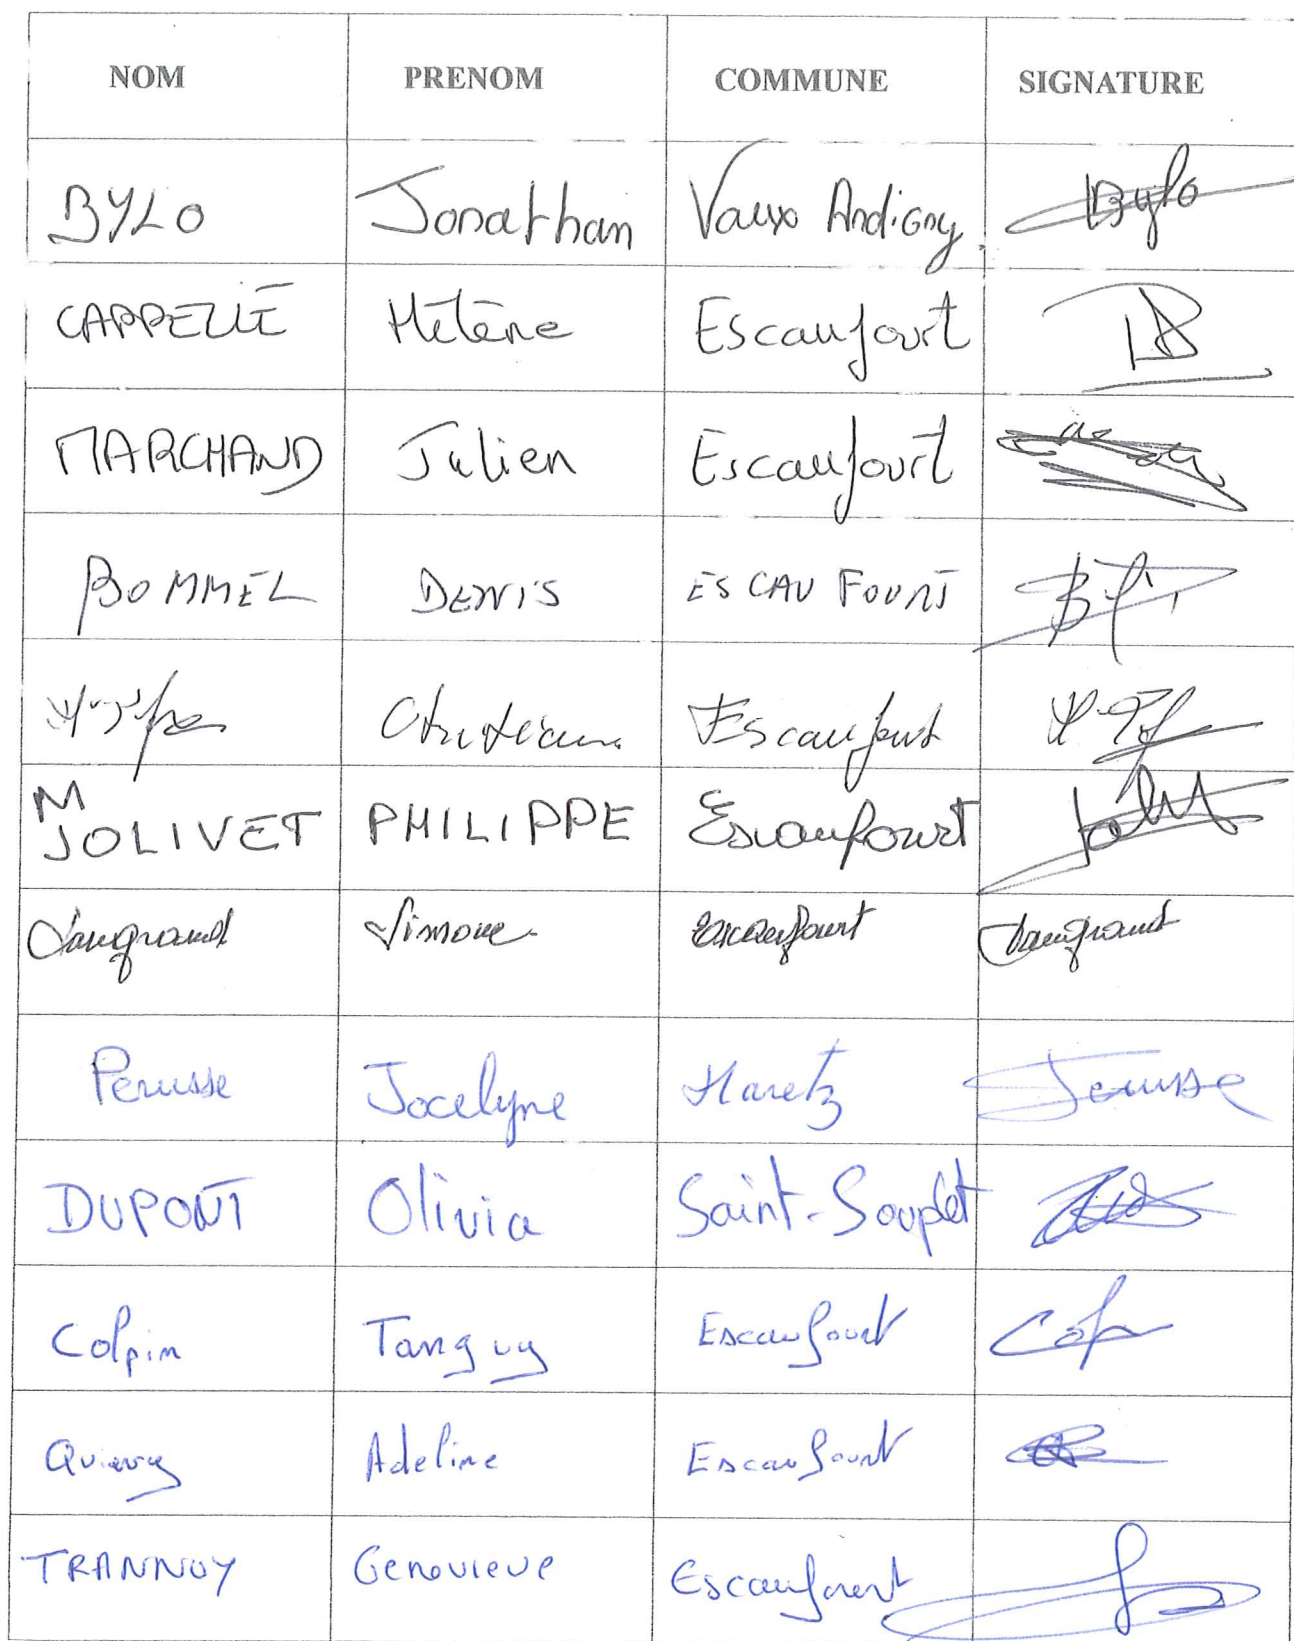 NOM PRENOM COMMUNE SIGNATURE
BYLO Jonathan Vaux Andigny Bylo
CAPPELLE Hélène Escaufourt
MARCHAND Julien Escaufourt
BOMMEL DENIS ESCAUFOURT
Escaufourt
M
JOLIVET PHILIPPE Escaufourt
Langrand Simone Escaufourt Langrand
Perusse Jocelyne Maretz Perusse
DUPONT Olivia Saint-Souplet
Colpin Tanguy Escaufourt
Quiévy Adeline Escaufourt
TRANNOY Genevieve Escaufourt